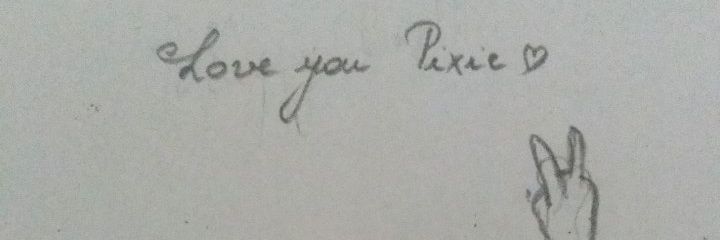 Love you Pixie ♡